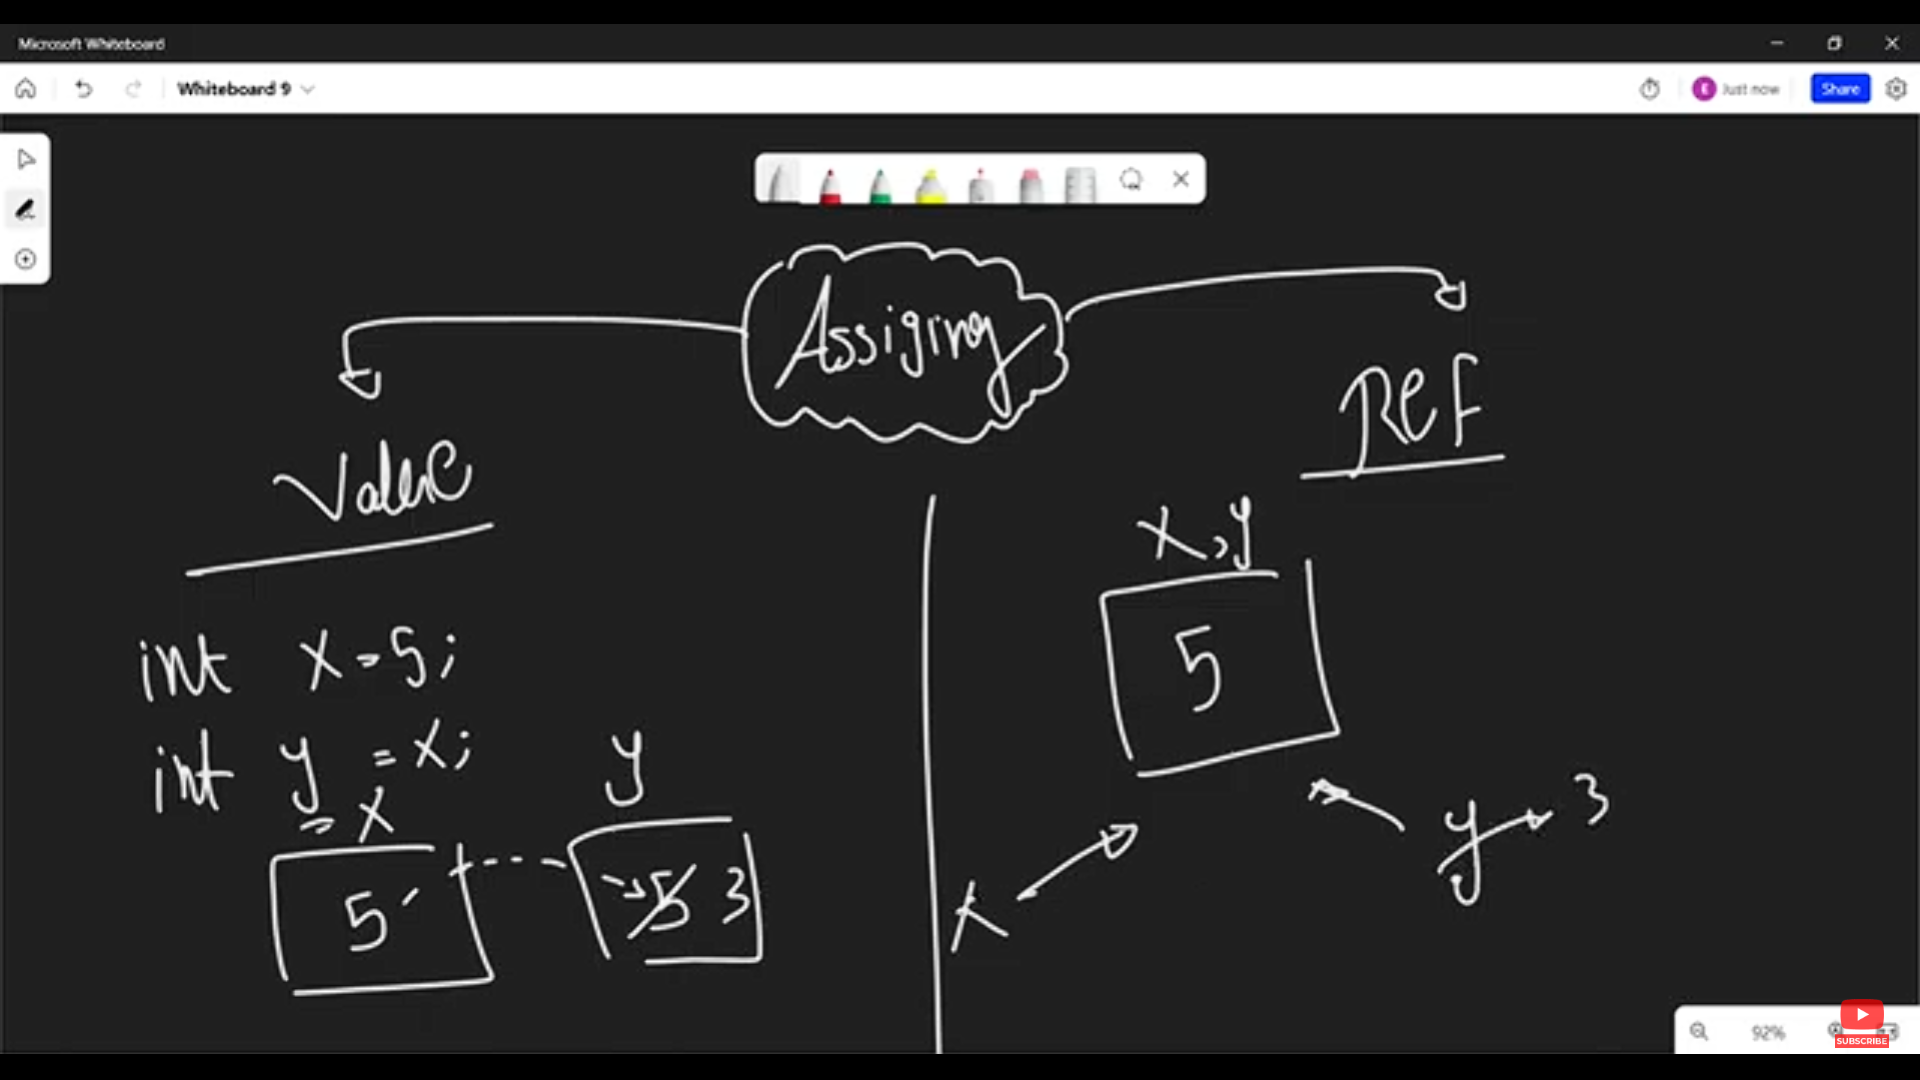 Microsoft Whiteboard
Whiteboard 9
E Just now Share
Assiging
Value
REF
x,y
5
int x = 5;
int y = x;
x
y
5
5 3
x
y 3
92%
SUBSCRIBE